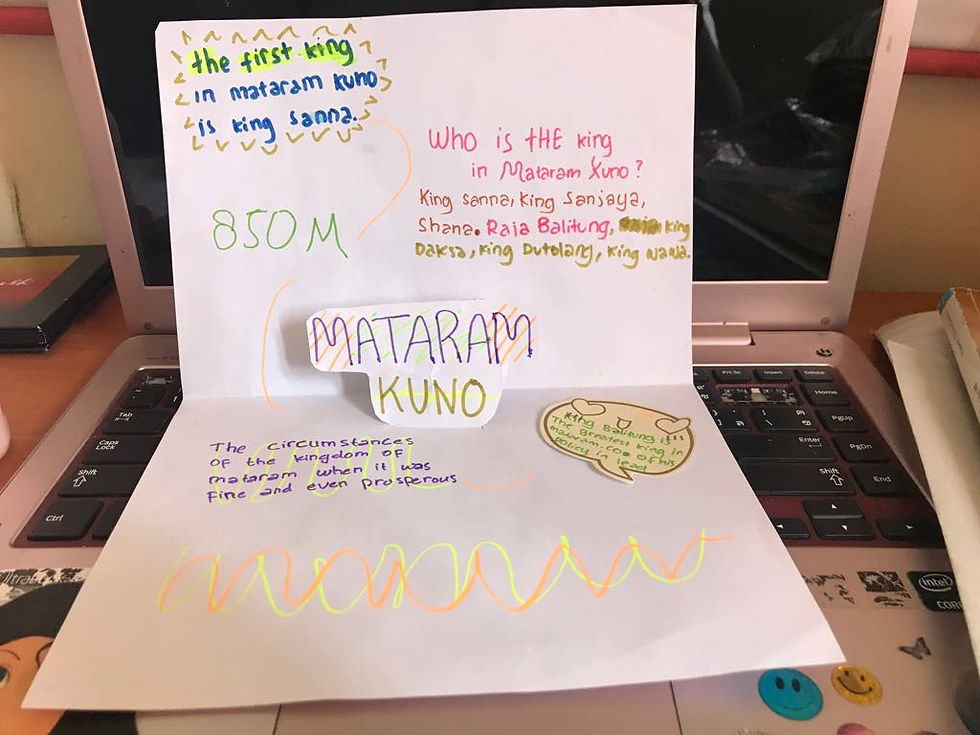 the first king
in mataram kuno
is king sanna.
Who is tHE king
in Mataram Kuno?
King sanna, king Sanjaya,
Shana. Raja Balitung, king
Daksa, king Dutolang, king Wawa.
850 M
MATARAM
KUNO
The circumstances
of the kingdom of
mataram when it was
fine and even prosperous
King Balitung is
The greatest king in
mataram. coz of his
policy in lead
PrtSc
Insert
Delete
Home
PgUp
Enter
PgDn
Shift
End
Tab
Caps
Lock
Shift
Ctrl
Ultrabook
intel
CORE